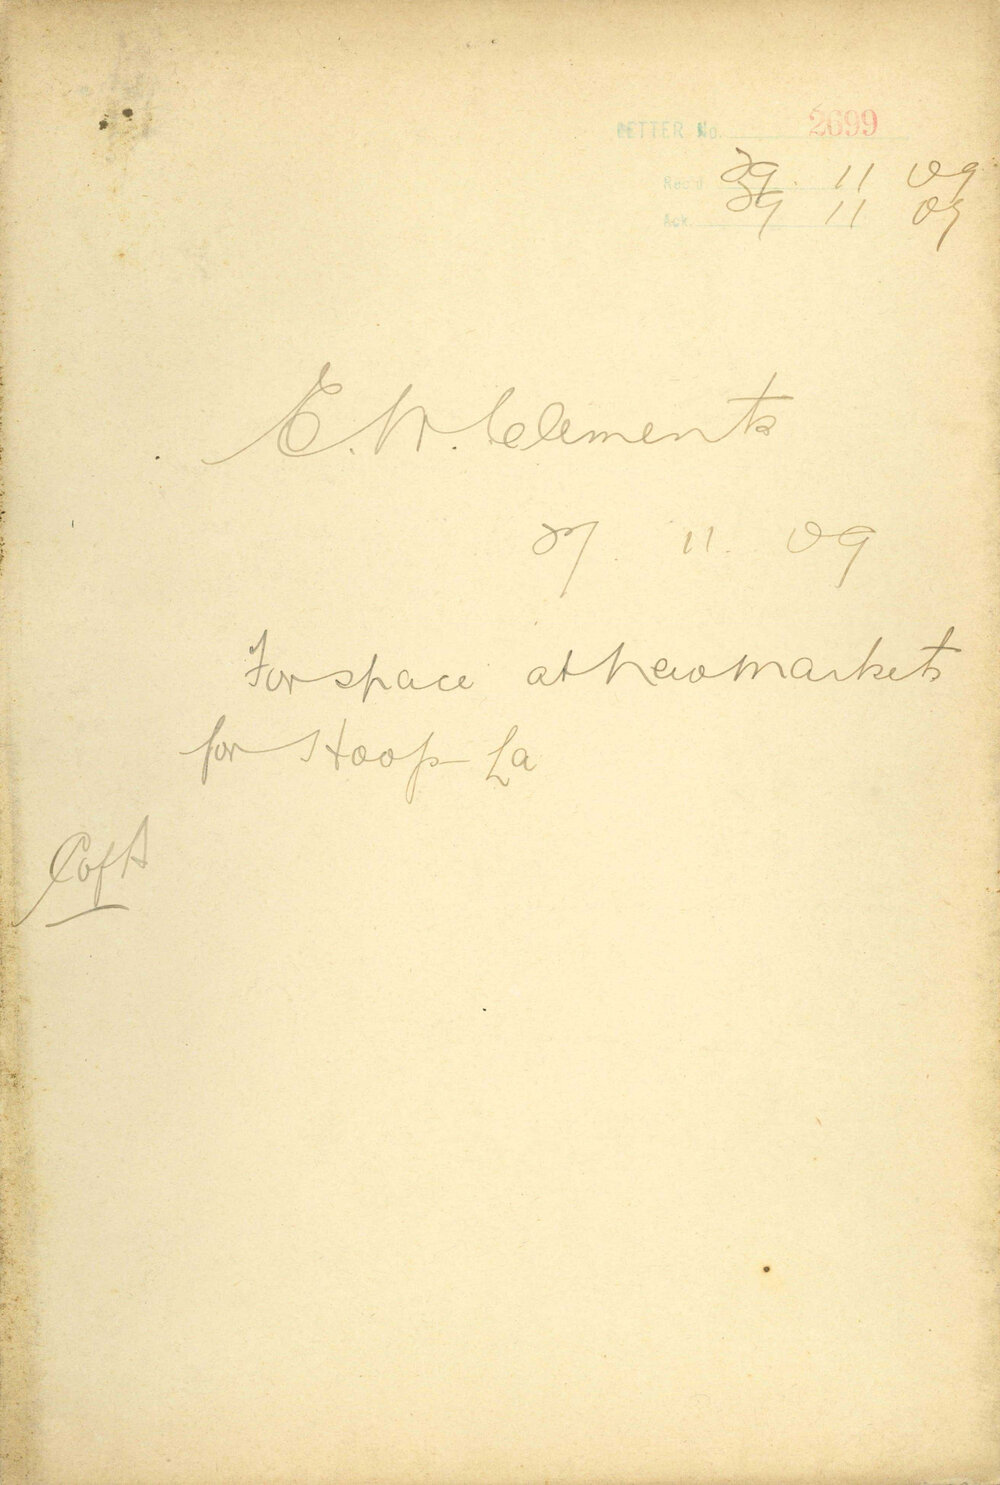 LETTER No. 2699
Rec'd 29. 11 09
Ack. 29 11 09
E. W. Clements
27. 11. 09
For space at New Markets
for Hoop-La
C of A